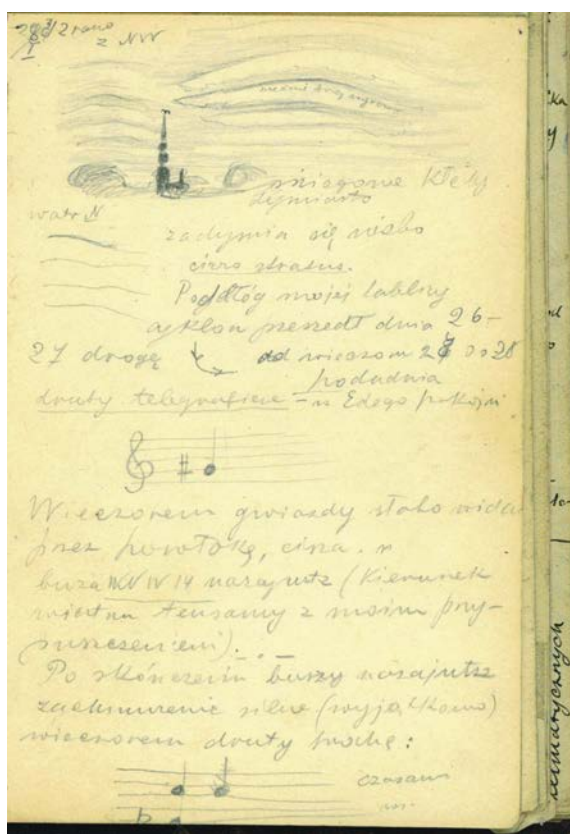 2 rano
z NW
śniegowe kłęby
dymiasto
wiatr N
zadymia się niebo
cirro stratus.
Podług mojej tablicy
cyklon przeszedł dnia 26-
27 drogą od wieczora 2 do 28
południa
druty telegraficzne - u Edego pokoju
Wieczorem gwiazdy słabo widać
przez powłokę, cisza.
burza NW IV 14 nazajutrz (kierunek
wiatru tensamy z moim przy-
puszczeniem).
Po skończeniu burzy nazajutrz
zachmurzenie silne (wyjątkowo)
wieczorem druty trochę:
czasami